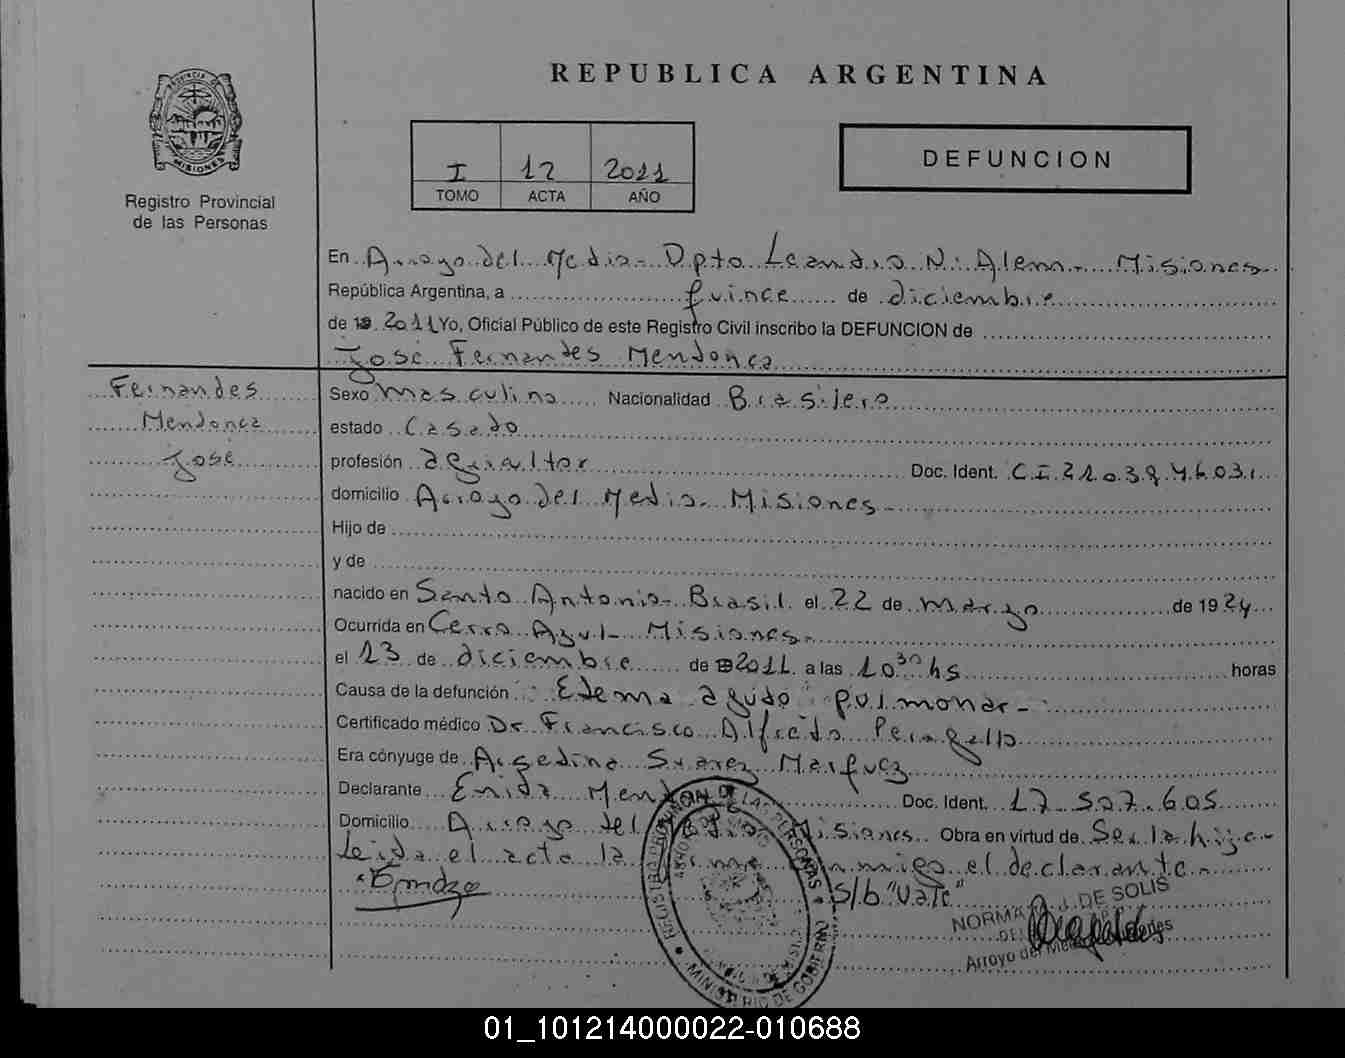 REPUBLICA ARGENTINA
PROVINCIA DE
MISIONES
Registro Provincial
de las Personas
I 12 2011
TOMO ACTA AÑO
DEFUNCION
En Arroyo del Medio - Dpto Leandro N. Alem - Misiones
República Argentina, a quince de diciembre
de 19 2011 Yo, Oficial Público de este Registro Civil inscribo la DEFUNCION de
José Fernandes Mendonca
Fernandes
Mendonca
José
Sexo masculino Nacionalidad Brasilera
estado Casado
profesión agricultor Doc. Ident. C.I.
domicilio Arroyo del Medio - Misiones -
Hijo de
y de
nacido en Santo Antonio - Brasil el 22 de marzo de 1924
Ocurrida en Cerro Azul - Misiones -
el 13 de diciembre de 2011 a las 10 30 hs horas
Causa de la defunción : Edema agudo pulmonar -
Certificado médico Dr. Francisco Alfredo
Era cónyuge de Suarez
Declarante Doc. Ident. 17.507.605
Domicilio Arroyo del Medio Misiones Obra en virtud de Ser la hija -
Leida el acta la firma el declarante -
S/b "Vale"
REGISTRO PROVINCIAL DE LAS PERSONAS
MINISTERIO DE GOBIERNO
NORMA J. DE SOLIS
Arroyo del Medio
01_101214000022-010688